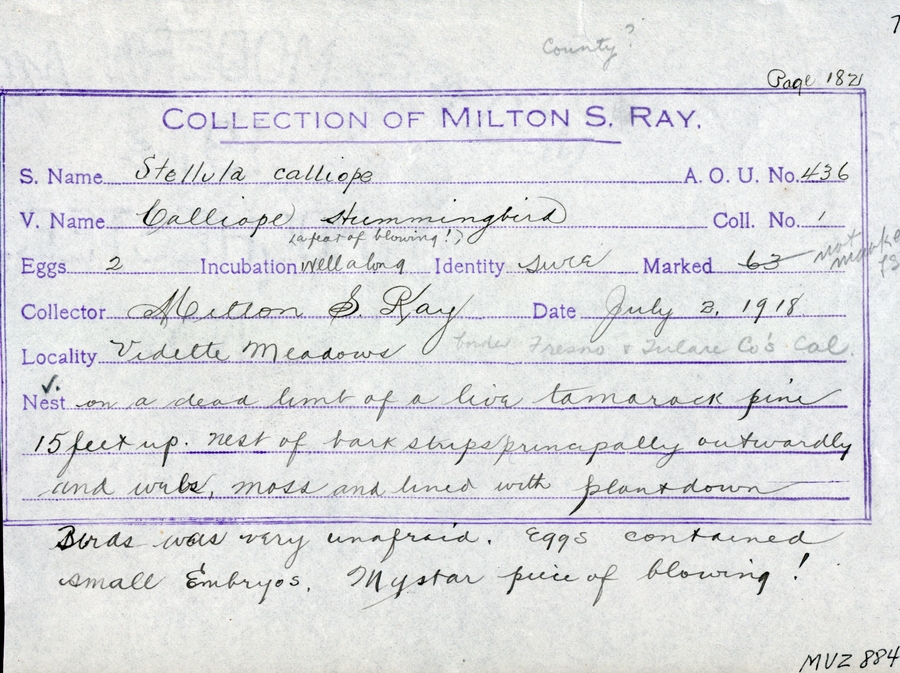 County?
Page 1821
COLLECTION OF MILTON S. RAY.
S. Name Stellula calliope A. O. U. No. 436
V. Name Calliope Hummingbird Coll. No. 1
(a feat of blowing!)
Eggs 2 Incubation well along Identity sure Marked 63 not
Collector Milton S. Ray Date July 3, 1918
Locality Vidette Meadows border Fresno & Tulare Co's Cal.
Nest on a dead limb of a live tamarack pine
15 feet up. nest of bark strips principally outwardly
and webs, moss and lined with plant down
Birds was very unafraid. Eggs contained
small Embryos. My star piece of blowing!
MVZ 884